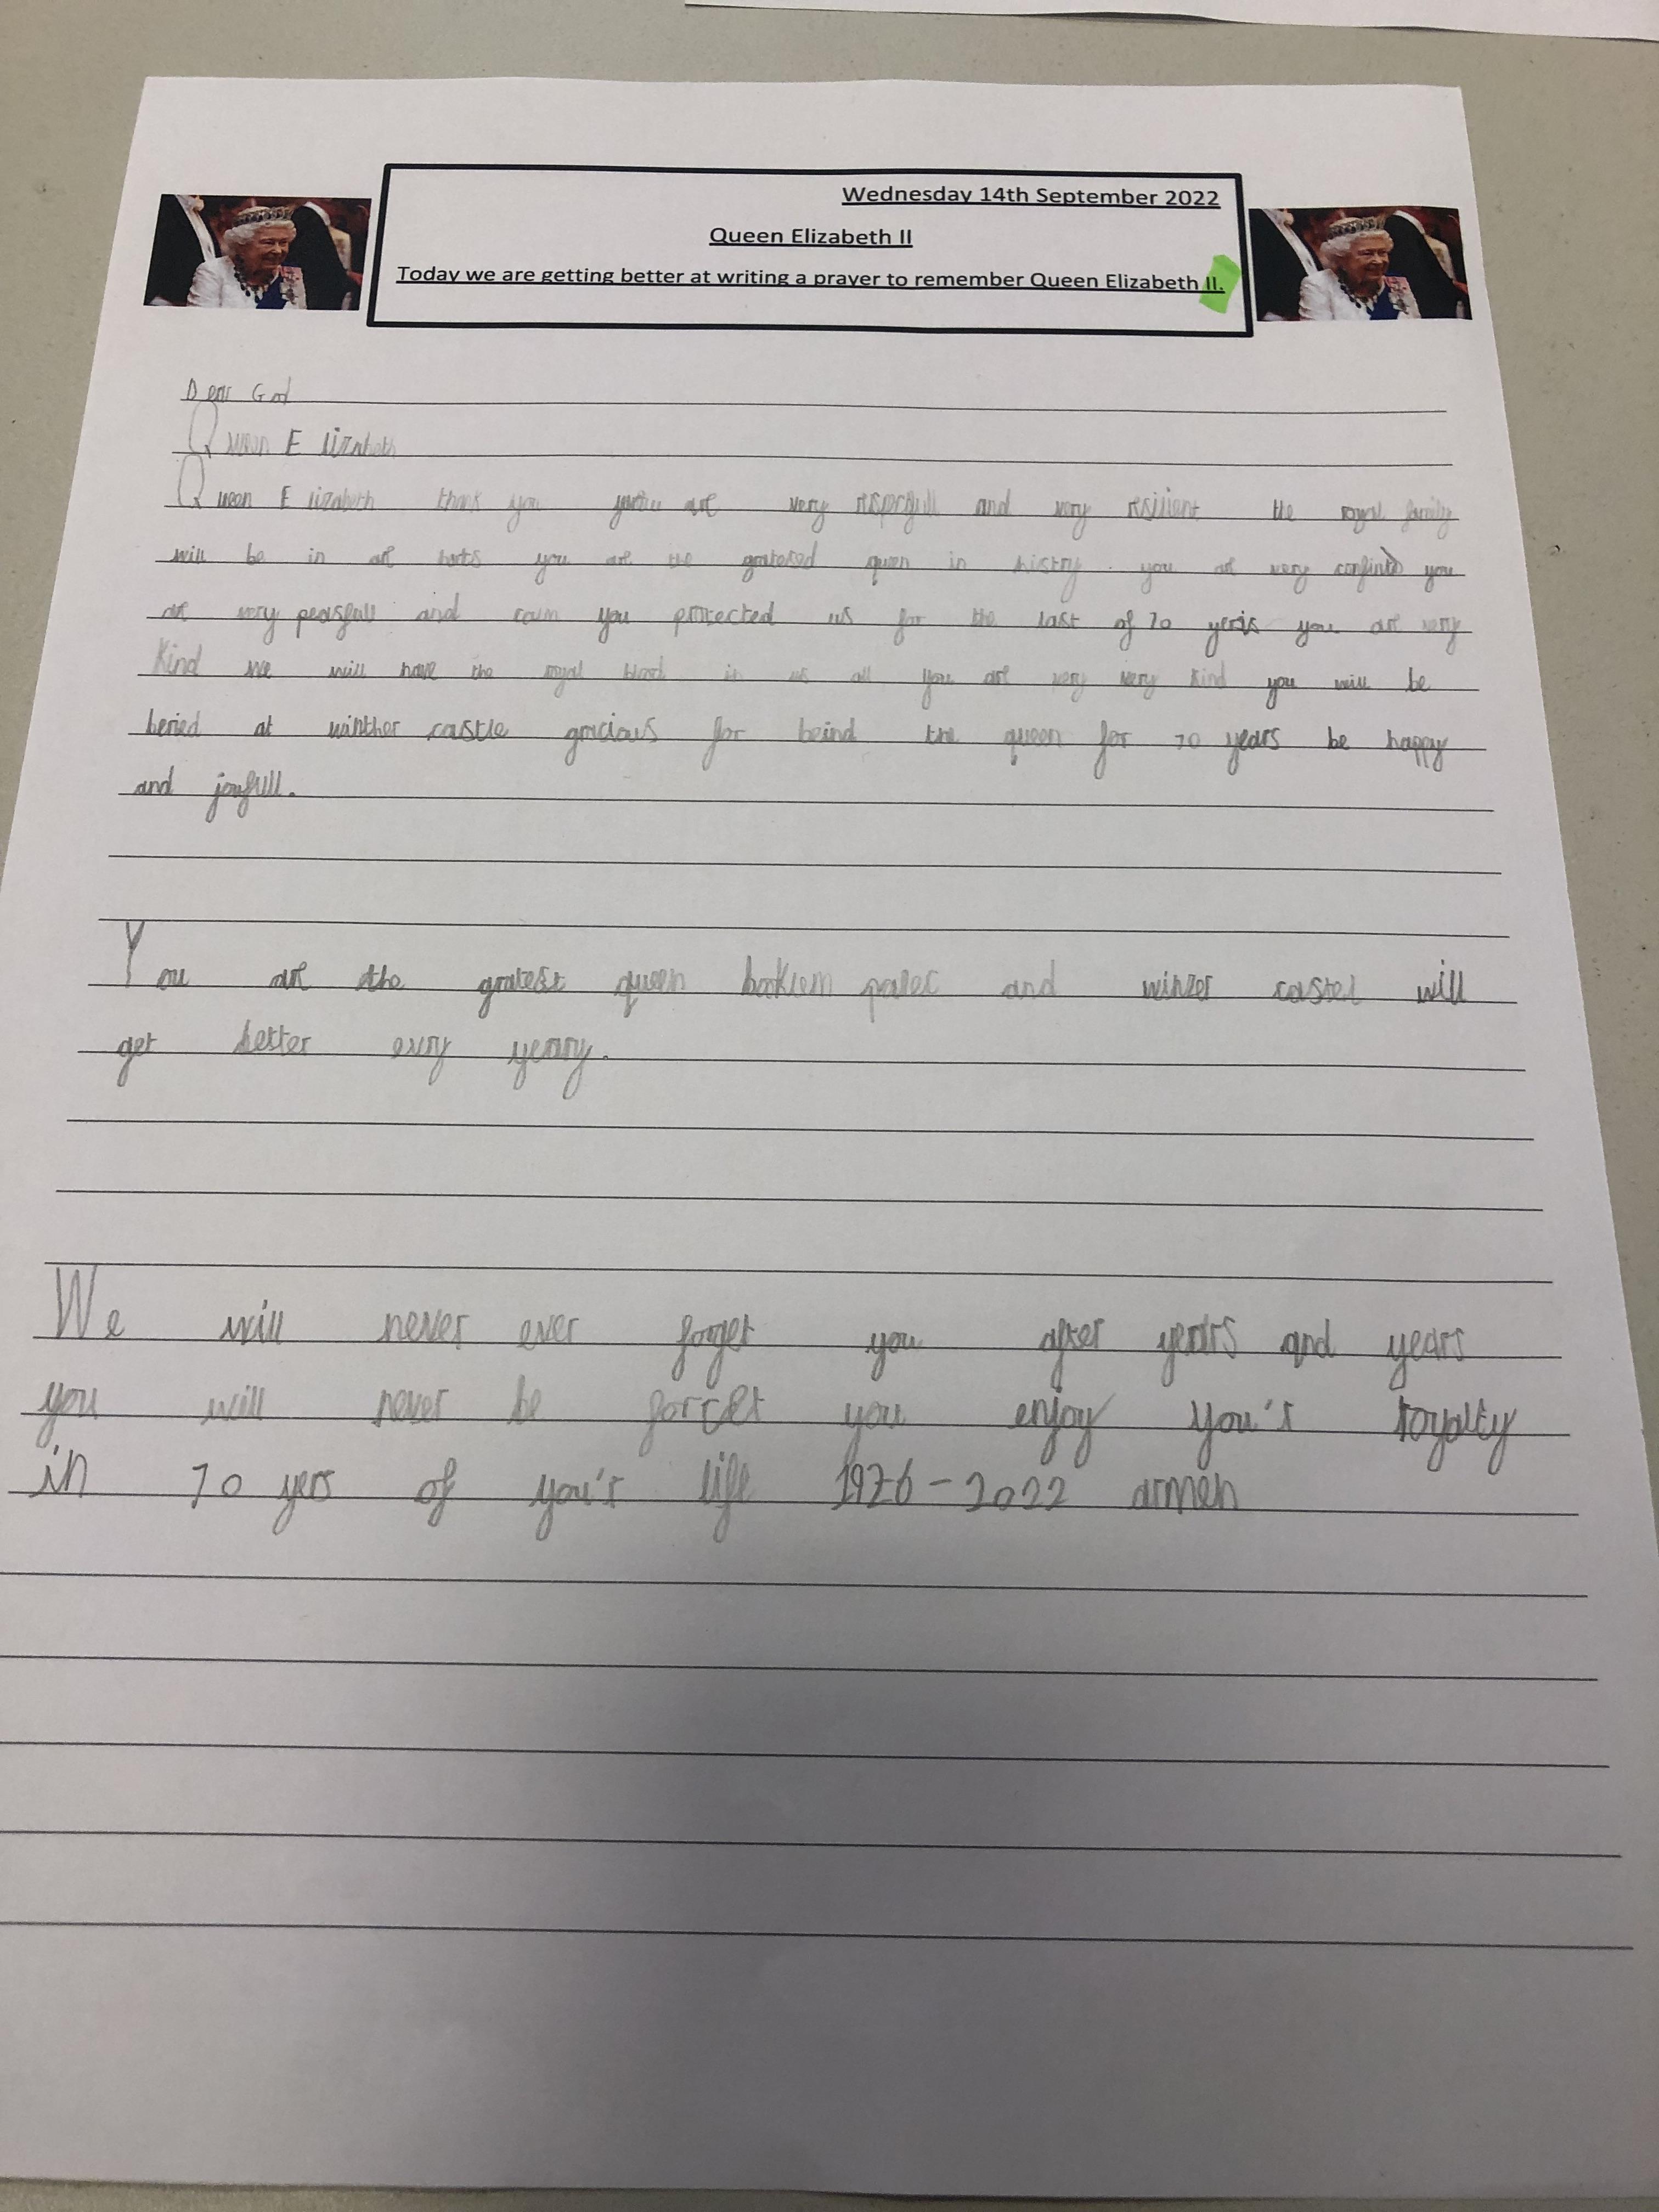 Wednesday 14th September 2022
Queen Elizabeth II
Today we are getting better at writing a prayer to remember Queen Elizabeth II.
Dear God
Queen Elizabeth
Queen Elizabeth thank you are very and very resilient the royal family
will be in are harts you are the gratesed queen in histry. you are very confind you
are very peasfull and caim you protected us for the last of 70 years you are very
Kind we will have the royal blood in us all you are very very kind you will be
beried at winther castle gracious for beind the queen for 70 years be happy
and joyfull.
You are the gratest queen bookiem palec and winzer castel will
get better evry yeary.
We will never ever forget you after years and years
you will never be forcet you enjoy you's royalty
in 70 yers of you's life 1926-2022 armen